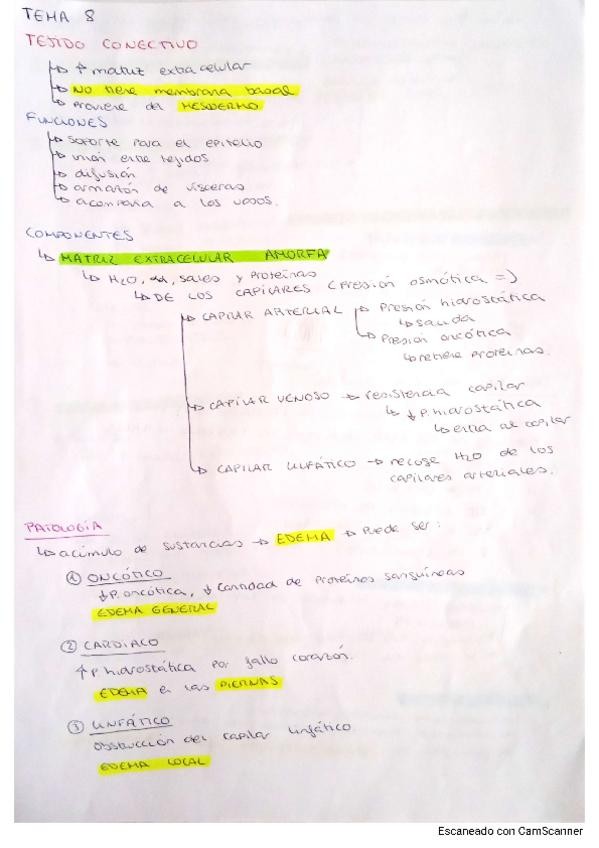 TEMA 8
TEJIDO CONECTIVO
↳ ↑ matriz extracelular
↳ NO tiene membrana basal
↳ Proviene del MESODERMO
FUNCIONES
↳ soporte para el epitelio
↳ unión entre tejidos
↳ difusión
↳ armazón de vísceras
↳ acompaña a los vasos.
COMPONENTES
↳ MATRIZ EXTRACELULAR AMORFA
↳ H2O, sales y Proteínas
↳ DE LOS CAPILARES (Presión osmótica =)
↳ CAPILAR ARTERIAL → Presión hidrostática
↳ salida
↳ Presión oncótica
↳ retiene proteínas.
↳ CAPILAR VENOSO → resistencia capilar
↳ ↓ P. hidrostática
↳ entra al capilar
↳ CAPILAR LINFÁTICO → recoge H2O de los
capilares arteriales.
PATOLOGÍA
↳ acúmulo de sustancias → EDEMA → Puede ser:
① ONCÓTICO
↓ P. oncótica, ↓ Cantidad de Proteínas sanguíneas
EDEMA GENERAL
② CARDIACO
↑ P hidrostática por fallo corazón.
EDEMA en las PIERNAS
③ LINFÁTICO
Obstrucción del capilar linfático
EDEMA LOCAL
Escaneado con CamScanner